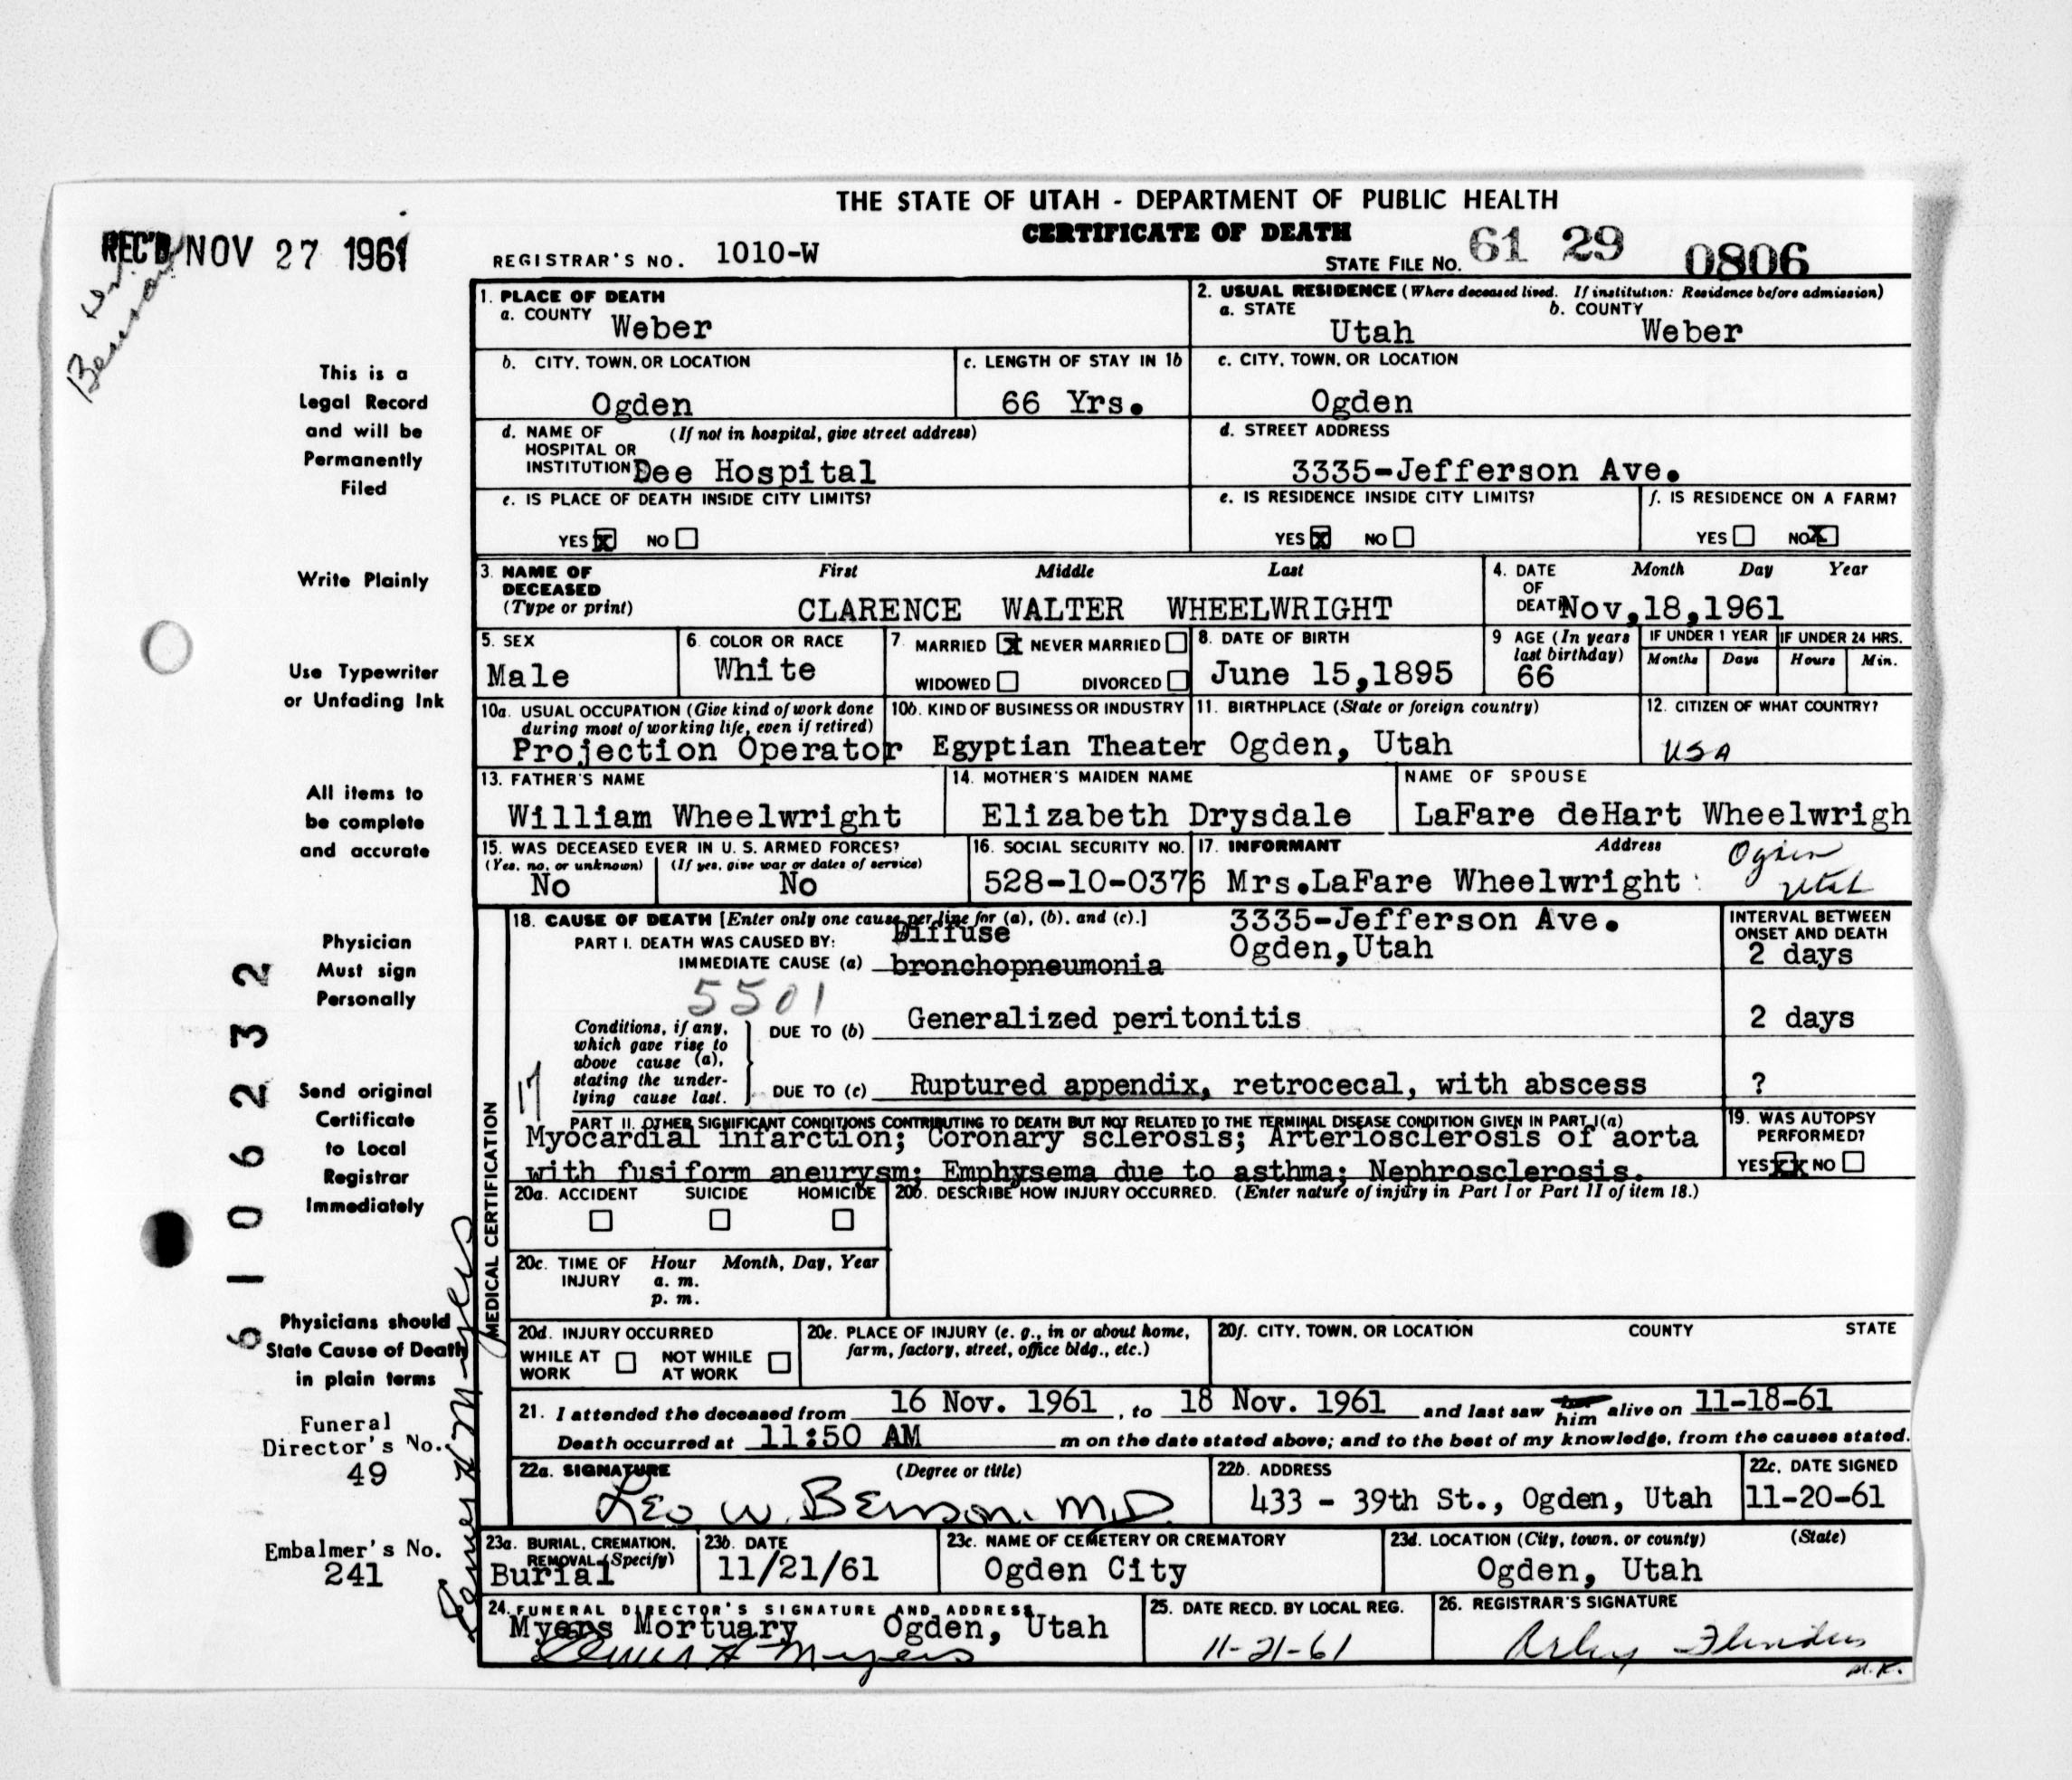 THE STATE OF UTAH - DEPARTMENT OF PUBLIC HEALTH
CERTIFICATE OF DEATH
REC'D NOV 27 1961
REGISTRAR'S NO. 1010-W
STATE FILE NO. 61 29 0806
Benson
This is a
Legal Record
and will be
Permanently
Filed
Write Plainly
Use Typewriter
or Unfading Ink
All items to
be complete
and accurate
Physician
Must sign
Personally
Send original
Certificate
to Local
Registrar
Immediately
Physicians should
State Cause of Death
in plain terms
Funeral
Director's No.
49
Embalmer's No.
241
6106232
1. PLACE OF DEATH
a. COUNTY Weber
2. USUAL RESIDENCE (Where deceased lived. If institution: Residence before admission)
a. STATE Utah b. COUNTY Weber
b. CITY, TOWN, OR LOCATION Ogden
c. LENGTH OF STAY IN 1b 66 Yrs.
c. CITY, TOWN, OR LOCATION Ogden
d. NAME OF HOSPITAL OR INSTITUTION (If not in hospital, give street address) Dee Hospital
d. STREET ADDRESS 3335-Jefferson Ave.
e. IS PLACE OF DEATH INSIDE CITY LIMITS? YES X NO
e. IS RESIDENCE INSIDE CITY LIMITS? YES X NO
f. IS RESIDENCE ON A FARM? YES NO X
3. NAME OF DECEASED (Type or print) First Middle Last
CLARENCE WALTER WHEELWRIGHT
4. DATE OF DEATH Month Day Year
Nov,18,1961
5. SEX Male
6. COLOR OR RACE White
7. MARRIED X NEVER MARRIED
WIDOWED DIVORCED
8. DATE OF BIRTH June 15,1895
9 AGE (In years last birthday) 66
IF UNDER 1 YEAR Months Days
IF UNDER 24 HRS. Hours Min.
10a. USUAL OCCUPATION (Give kind of work done during most of working life, even if retired)
Projection Operator
10b. KIND OF BUSINESS OR INDUSTRY
Egyptian Theater
11. BIRTHPLACE (State or foreign country)
Ogden, Utah
12. CITIZEN OF WHAT COUNTRY?
USA
13. FATHER'S NAME
William Wheelwright
14. MOTHER'S MAIDEN NAME
Elizabeth Drysdale
NAME OF SPOUSE
LaFare deHart Wheelwrigh
15. WAS DECEASED EVER IN U. S. ARMED FORCES?
(Yes, no, or unknown) No
(If yes, give war or dates of service) No
16. SOCIAL SECURITY NO.
528-10-0376
17. INFORMANT Address
Mrs.LaFare Wheelwright Ogden Utah
3335-Jefferson Ave.
Ogden,Utah
MEDICAL CERTIFICATION
18. CAUSE OF DEATH [Enter only one cause per line for (a), (b), and (c).]
PART I. DEATH WAS CAUSED BY:
IMMEDIATE CAUSE (a) Diffuse bronchopneumonia
INTERVAL BETWEEN ONSET AND DEATH
2 days
5501
Conditions, if any, which gave rise to above cause (a), stating the underlying cause last.
DUE TO (b) Generalized peritonitis 2 days
17
DUE TO (c) Ruptured appendix, retrocecal, with abscess ?
PART II. OTHER SIGNIFICANT CONDITIONS CONTRIBUTING TO DEATH BUT NOT RELATED TO THE TERMINAL DISEASE CONDITION GIVEN IN PART I(a)
Myocardial infarction; Coronary sclerosis; Arteriosclerosis of aorta
with fusiform aneurysm; Emphysema due to asthma; Nephrosclerosis.
19. WAS AUTOPSY PERFORMED?
YES XX NO
20a. ACCIDENT SUICIDE HOMICIDE
20b. DESCRIBE HOW INJURY OCCURRED. (Enter nature of injury in Part I or Part II of item 18.)
20c. TIME OF INJURY Hour Month, Day, Year
a. m.
p. m.
20d. INJURY OCCURRED
WHILE AT WORK NOT WHILE AT WORK
20e. PLACE OF INJURY (e. g., in or about home, farm, factory, street, office bldg., etc.)
20f. CITY, TOWN, OR LOCATION COUNTY STATE
21. I attended the deceased from 16 Nov. 1961, to 18 Nov. 1961 and last saw him alive on 11-18-61
Death occurred at 11:50 AM m on the date stated above; and to the best of my knowledge, from the causes stated.
22a. SIGNATURE (Degree or title)
Leo W. Benson. M.D.
22b. ADDRESS
433 - 39th St., Ogden, Utah
22c. DATE SIGNED
11-20-61
23a. BURIAL, CREMATION, REMOVAL (Specify)
Burial
23b. DATE
11/21/61
23c. NAME OF CEMETERY OR CREMATORY
Ogden City
23d. LOCATION (City, town, or county) (State)
Ogden, Utah
24. FUNERAL DIRECTOR'S SIGNATURE AND ADDRESS
Myers Mortuary Ogden, Utah
Myers
25. DATE RECD. BY LOCAL REG.
11-21-61
26. REGISTRAR'S SIGNATURE
Arley Flinders